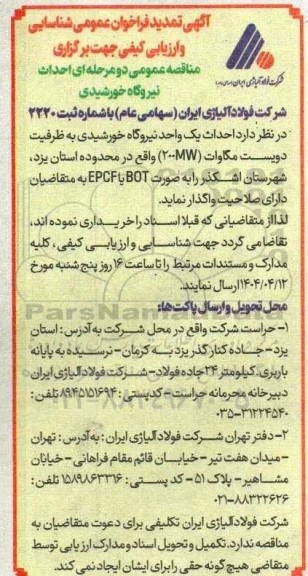 آگهی تمدید فراخوان عمومی شناسایی
وارزیابی کیفی جهت برگزاری
مناقصه عمومی دو مرحله ای احداث
نیروگاه خورشیدی
شرکت فولاد آلیاژی ایران (سهامی عام)
شرکت فولاد آلیاژی ایران (سهامی عام) با شماره ثبت ۲۲۲۰
در نظر دارد احداث یک واحد نیروگاه خورشیدی به ظرفیت
دویست مگاوات (۲۰۰MW) واقع در محدوده استان یزد،
شهرستان اشکذر را به صورت BOT یا EPCF به متقاضیان
دارای صلاحیت واگذار نماید.
لذا از متقاضیانی که قبلا اسناد را خریداری نموده اند،
تقاضا می گردد جهت شناسایی و ارزیابی کیفی، کلیه
مدارک و مستندات مرتبط را تا ساعت ۱۶ روز پنج شنبه مورخ
۱۴۰۴/۰۴/۱۲ ارسال نمایند.
محل تحویل و ارسال پاکت ها:
۱- حراست شرکت واقع در محل شرکت به آدرس: استان
یزد- جاده کنار گذر یزد به کرمان- نرسیده به پایانه
باربری- کیلومتر ۲۴ جاده فولاد- شرکت فولاد آلیاژی ایران
دبیرخانه محرمانه حراست- کدپستی: ۸۹۴۵۱۵۱۶۹۴ تلفن:
۰۳۵-۳۱۲۲۴۵۴۰
۲- دفتر تهران شرکت فولاد آلیاژی ایران: به آدرس: تهران
- میدان هفت تیر- خیابان قائم مقام فراهانی- خیابان
مشاهیر- پلاک ۵۱- کد پستی: ۱۵۸۹۸۶۳۳۱۶ تلفن:
۰۲۱-۸۸۳۲۲۶۲۶
شرکت فولاد آلیاژی ایران تکلیفی برای دعوت متقاضیان به
مناقصه ندارد. تکمیل و تحویل اسناد و مدارک ارزیابی توسط
متقاضی هیچ گونه حقی را برای ایشان ایجاد نمی کند.